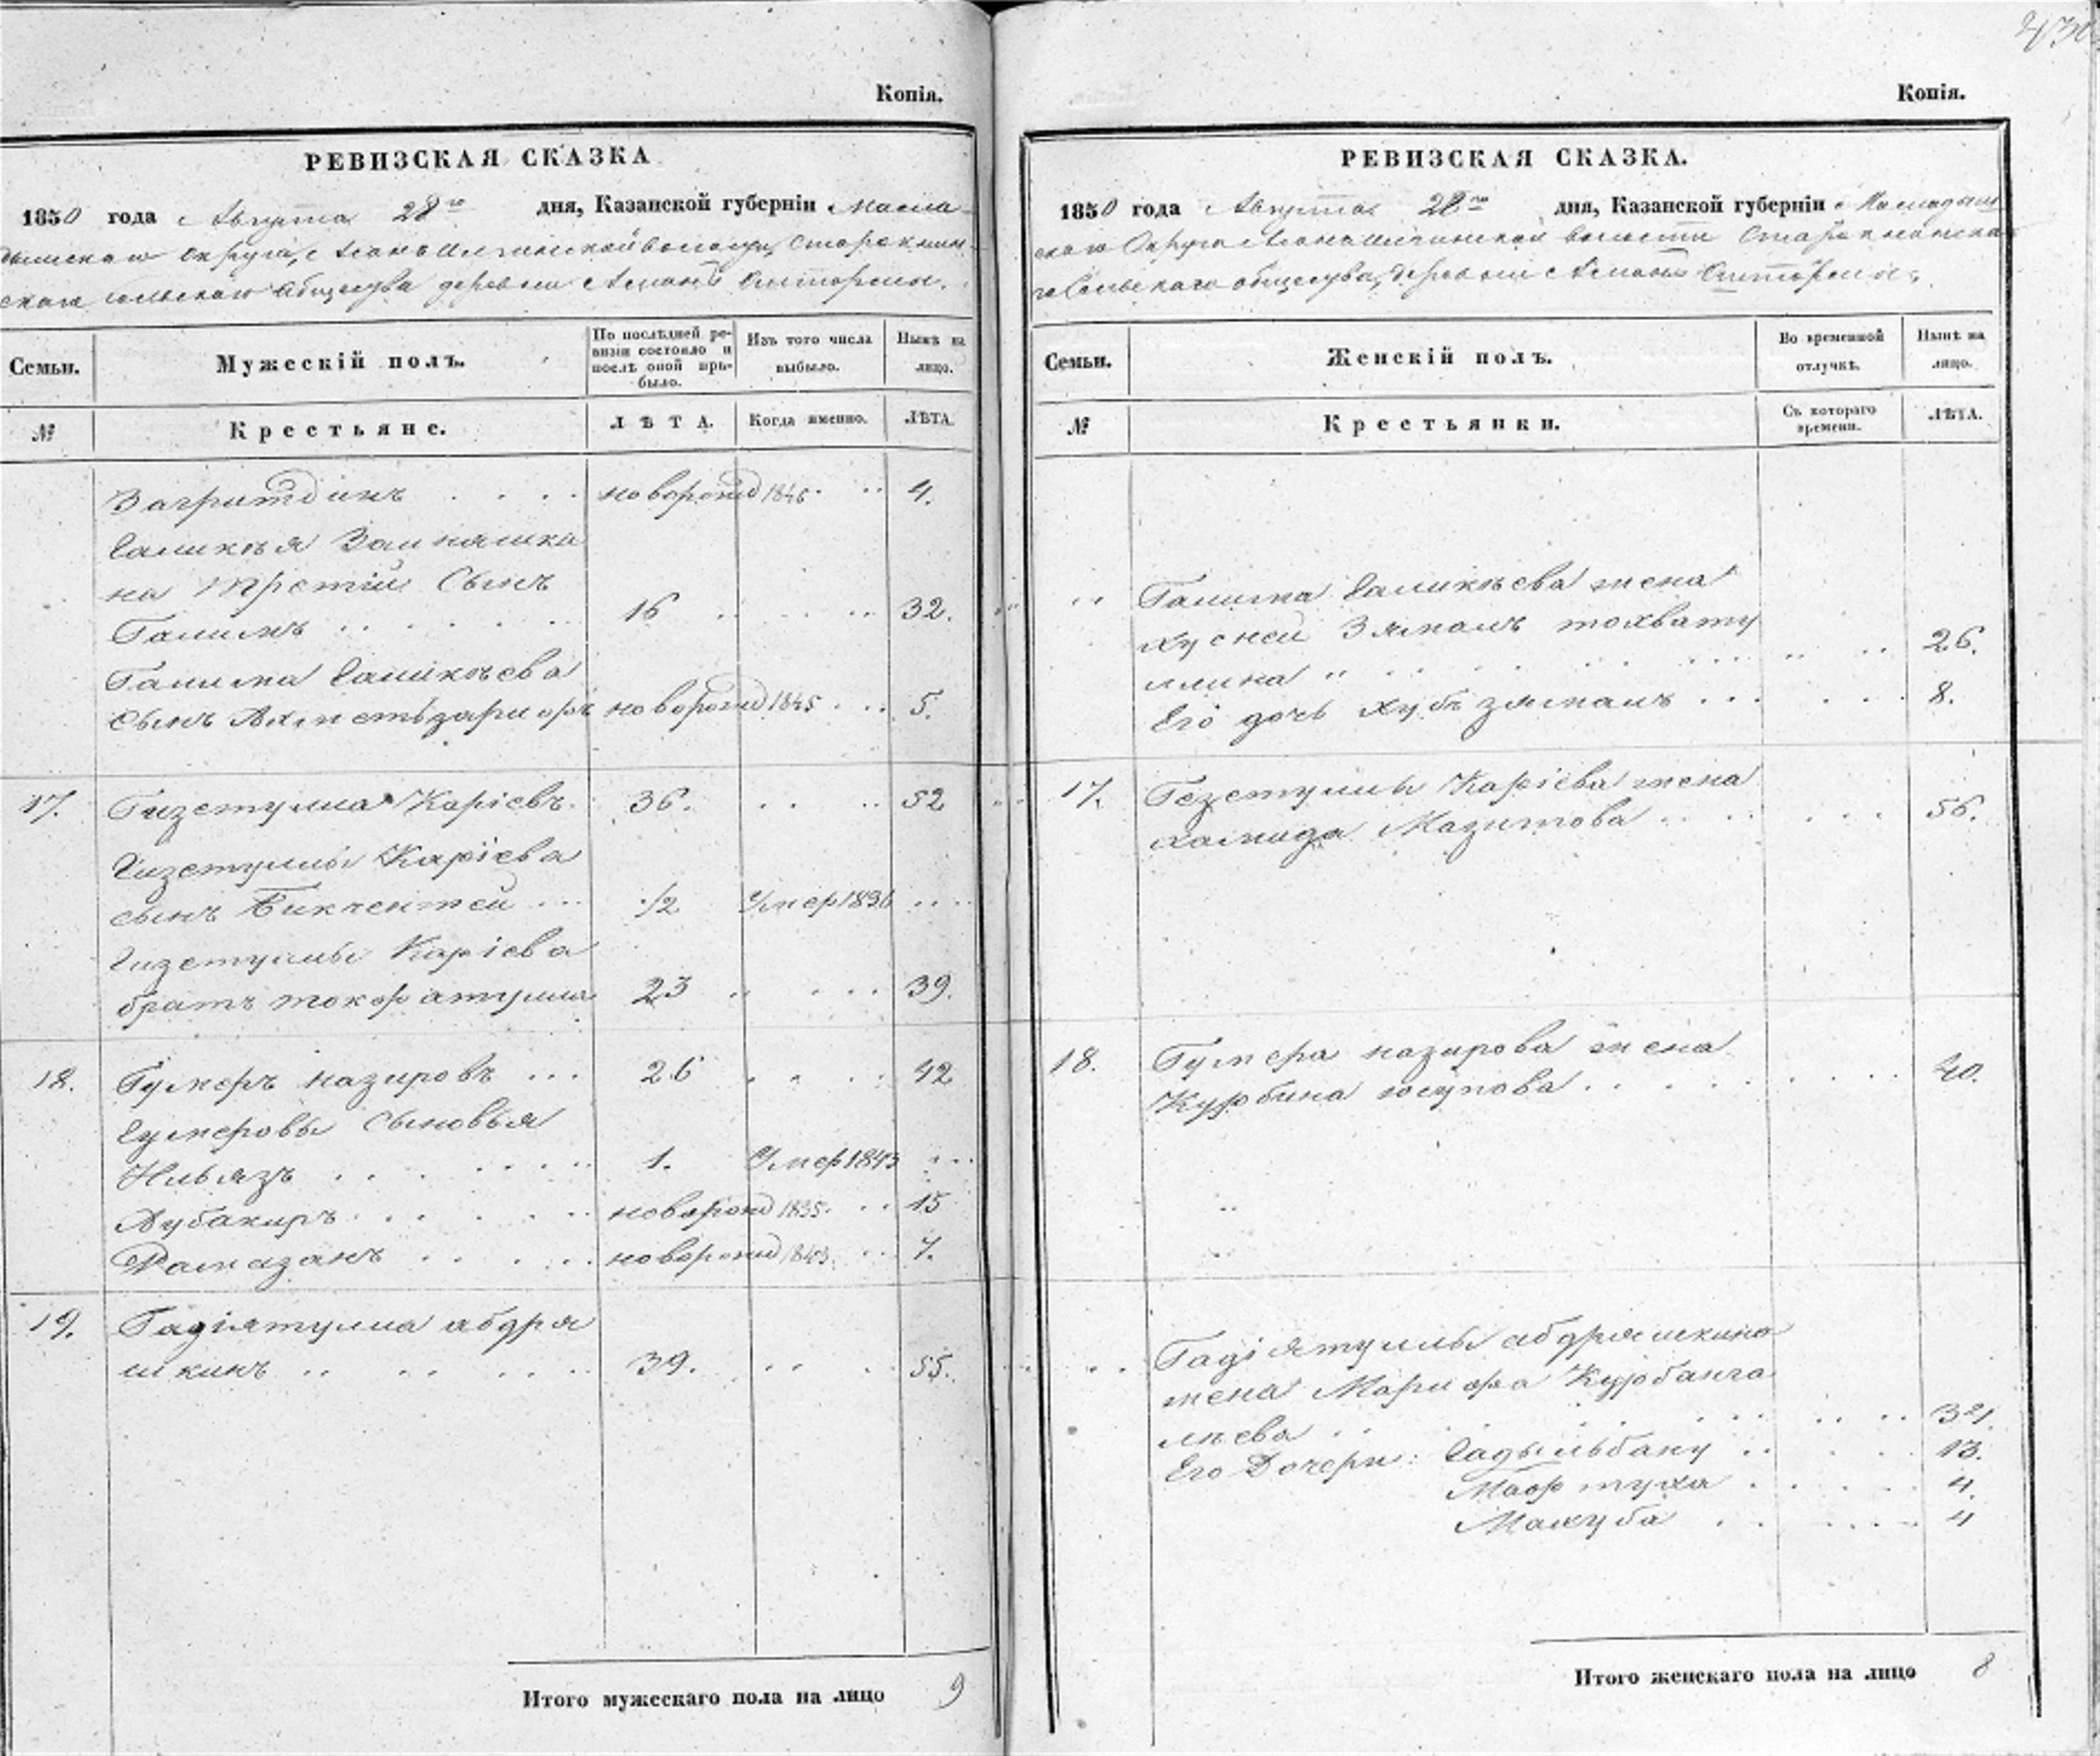 430
Копія.
РЕВИЗСКАЯ СКАЗКА
1850 года Августа 28го дня, Казанской губерніи Масма-
дышскаго округа, волости, Старокнян-
скаго сельскаго общества деревни
Семьи. Мужескій полъ. По послѣдней ре-визіи состояло и послѣ оной при-было. Изъ того числа выбыло. Нынѣ на лицо.
№ Крестьяне. ЛѢТА. Когда именно. ЛѢТА.
Загритдинъ новорожд 1846 4.
Галикѣя Заиняшки
на третій Сынъ
Галимъ 16 32.
Галима Галикѣева
сынъ новорожд 1845 5.
17. Гизетулла Каріевъ 36. 52
Гизетуллы Каріева
сынъ Бикчентей 1/2 Умер 1836
Гизетуллы Каріева
братъ 23 39.
18. Гумеръ назировъ 26 42
Гумеровы Сыновья
Ниьязъ 1. Умер 1843
Аубакиръ новорожд 1835 15
Рамазанъ новорожд 1843 7.
19. Гадіятулла абдря
шкинъ 39. 55.
Итого мужескаго пола на лицо 9
Копія.
РЕВИЗСКАЯ СКАЗКА.
1850 года Августа 28го дня, Казанской губерніи
скаго Округа волости
общества, деревни
Семьи. Женскій полъ. Во временной отлучкѣ. Нынѣ на лицо.
№ Крестьянки. Съ котораго времени. ЛѢТА.
Галима Галикѣева жена
Хусней Зямалъ тохвату
ллина 26.
Его дочь Хубъзямалъ 8.
17. Гезетуллы Каріева жена
хамида Мазитова 56.
18. Гумера назирова жена
Курбина юсупова 40.
Гадіятуллы абдряшкина
жена Марифа Курбанга
лѣева
Его Дочери: Гадыльбану 13.
Мафтуха 4.
Махуба 4
Итого женскаго пола на лицо 8